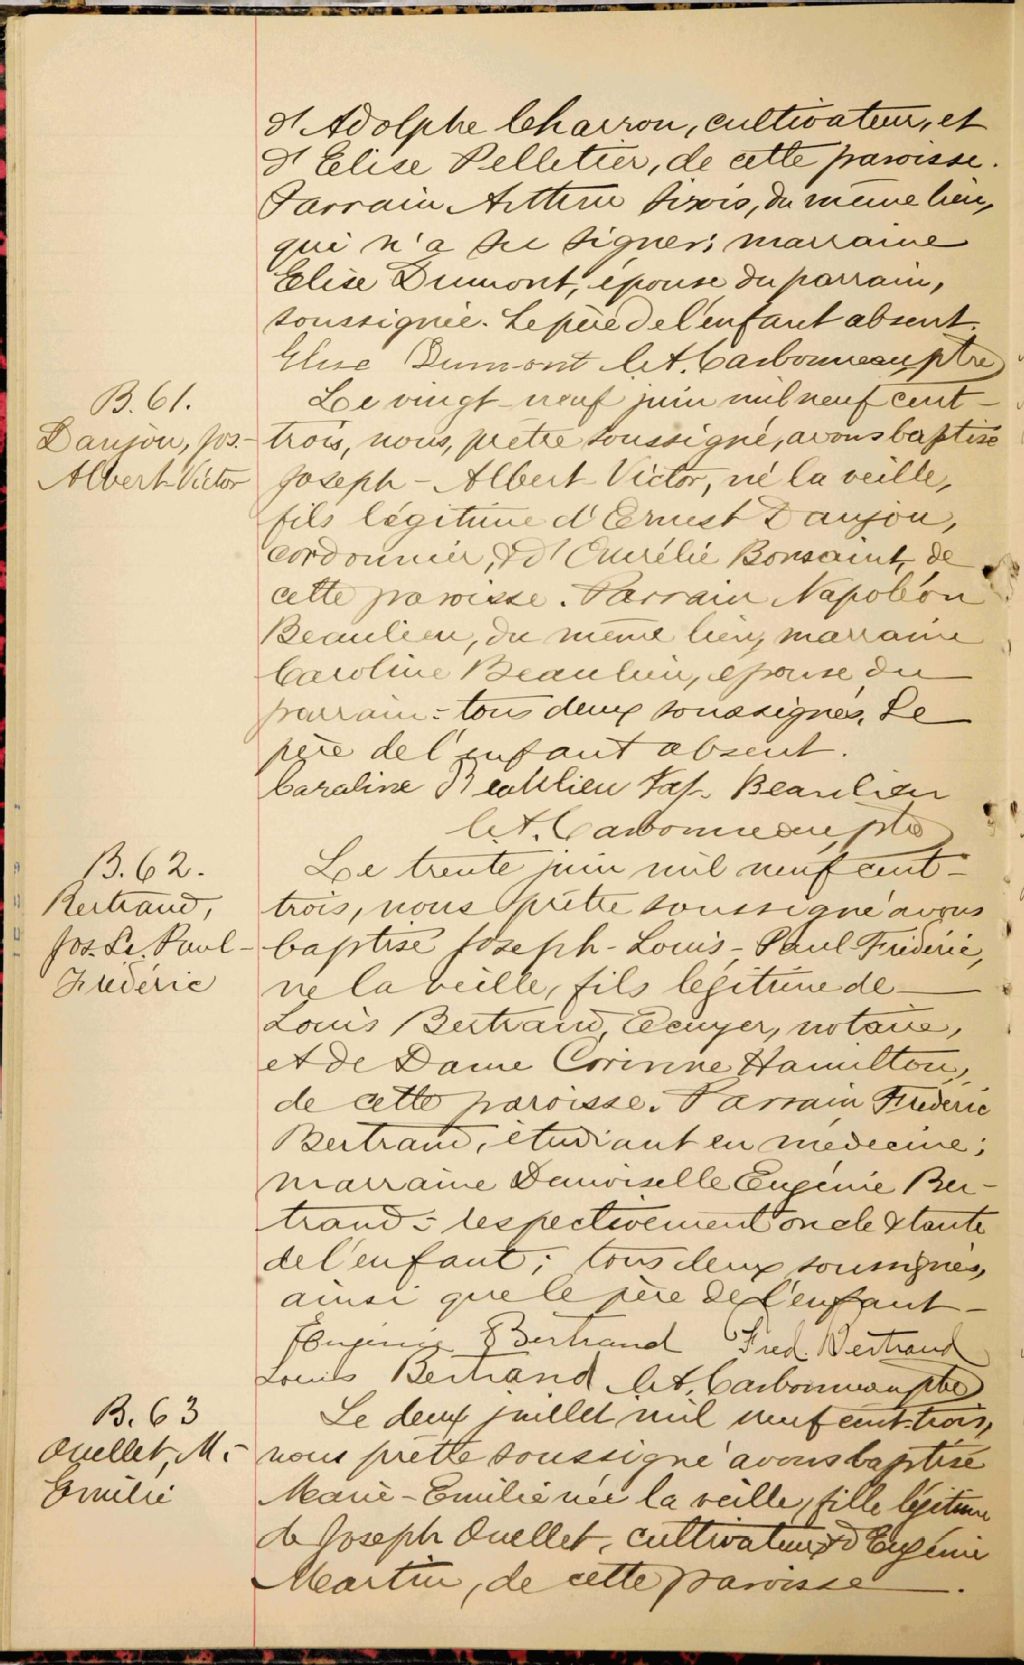 d'Adolphe Charron, cultivateur, et
d'Elise Pelletier, de cette paroisse.
Parrain Arthur Sirois, du même lieu,
qui n'a su signer; marraine
Elise Dumont, épouse du parrain,
soussignée. Le père de l'enfant absent.
Elise Dumont Ls A. Carbonneau, ptre
B. 61.
Danjou, Jos.-
Albert-Victor
Le vingt-neuf juin mil neuf cent-
trois, nous, prêtre soussigné, avons baptisé
Joseph-Albert-Victor, né la veille,
fils légitime d'Ernest Danjou,
cordonnier, & d'Aurélie Bonsaint, de
cette paroisse. Parrain Napoléon
Beaulieu, du même lieu, marraine
Caroline Beaulieu, épouse du
parrain = tous deux soussignés. Le
père de l'enfant absent.
Caroline Beaulieu Nap. Beaulieu
Carbonneau, ptre
B. 62.
Bertrand,
Jos. Ls. Paul-
Fréderic
Le trente juin mil neuf cent-
trois, nous prêtre soussigné avons
baptisé Joseph-Louis-Paul Fréderic,
né la veille, fils légitime de
Louis Bertrand, Ecuyer, notaire,
et de Dame Corinne Hamilton,
de cette paroisse. Parrain Fréderic
Bertrand, étudiant en médecine;
marraine Demoiselle Eugénie Ber-
trand = respectivement oncle & tante
de l'enfant; tous deux soussignés,
ainsi que le père de l'enfant-
Eugénie Bertrand Fred. Bertrand
Louis Bertrand Carbonneau ptre
B. 63
Ouellet, M.-
Emilie
Le deux juillet mil neuf cent-trois,
nous prêtre soussigné avons baptisé
Marie-Emilie née la veille, fille légitime
de Joseph Ouellet, cultivateur & d'Eugénie
Martin, de cette paroisse.